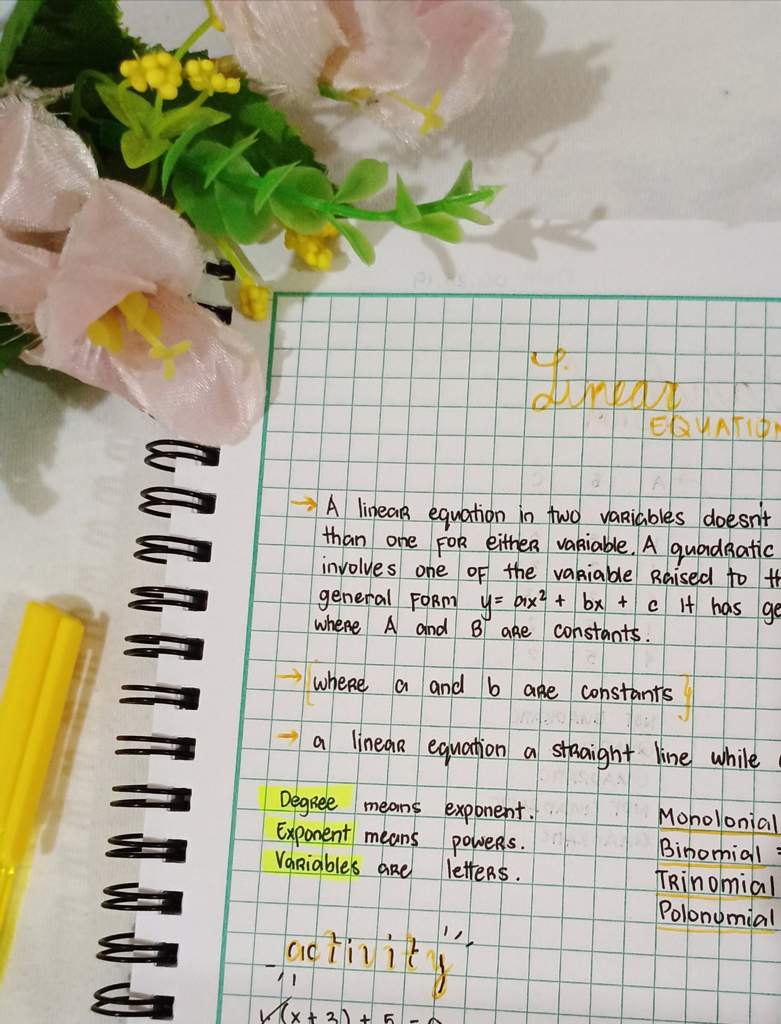 Linear
EQUATION
→ A linear equation in two variables doesn't
than one for either variable. A quadratic
involves one of the variable raised to th
general form y = ax² + bx + c It has ge
where A and B are constants.
→ [where a and b are constants}
→ a linear equation a straight line while
Degree means exponent.
Exponent means powers.
Variables are letters.
Monolonial
Binomial =
Trinomial
Polonumial
activity
(x + 3) + 5 =